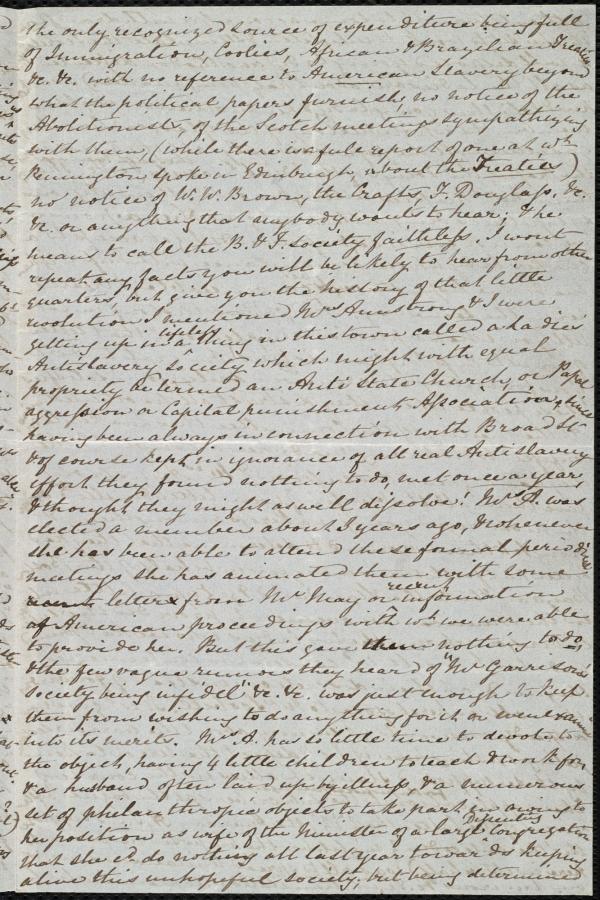 the only recognized source of expenditure being full
of Immigration, Coolies, African & Brazilian Treaties
&c. &c. with no reference to American Slavery beyond
what the political papers furnish, no notice of the
Abolitionists, of the Scotch meetings sympathizing
with them, (while there is a full report of one at wh
Pennington spoke in Edinburgh, about the Treaties)
no notice of W. W. Brown, the Crafts, F. Douglass, &c.
&c. or anything that anybody wants to hear; the
means to call the B. & F. Society faithless. I wont
repeat any facts you will be likely to hear from other
quarters, but give you the history of that little
revolution I mentioned Mrs Armstrong & I were
getting up in a useless thing in this town called a Ladies'
Antislavery Society which might with equal
propriety be termed an Anti State Church, or Papal
aggression or Capital punishment Association, since
having been always in connection with Broad St
& of course kept in ignorance of all real Antislavery
effort they found nothing to do, met once a year,
& thought they might as well dissolve! Mrs A. was
elected a member about 3 years ago, & whenever
she has been able to attend these formal periodical
meetings she has animated them with some
letter from Mr May or recent information
of American proceedings with wh we were able
to provide her. But this gave them nothing to do,
& the few vague rumours they heard of "Mr Garrison's
society being infidel" &c. &c. was just enough to keep
them from wishing to do anything for it or even examine
into its merits. Mrs A. has so little time to devote to
the object, having 4 little children to teach & work for,
& a husband often laid up by illness, & a numerous
set of philanthropic objects to take part in owing to
her position as wife of the Minister of a large Dissenting congregation
that she cd do nothing all last year towards keeping
alive this unhopeful society; but being determined